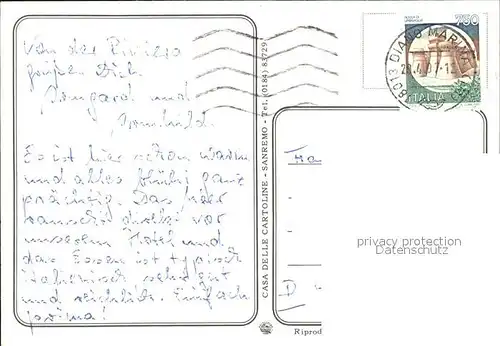 Von der Riviera
grüßen Dich
Irmgard und
Romhild.
Es ist hier schon warm
und alles blüht ganz
prächtig. Das Meer
rauscht direkt vor
unserem Hotel und
das Essen ist typisch
italienisch sehr gut
und reichlich. Einfach
prima!
CASA DELLE CARTOLINE - SANREMO - Tel. (0184) 83729
750
ITALIA
18013 DIANO MARINA
D
privacy protection
Datenschutz
Riprod